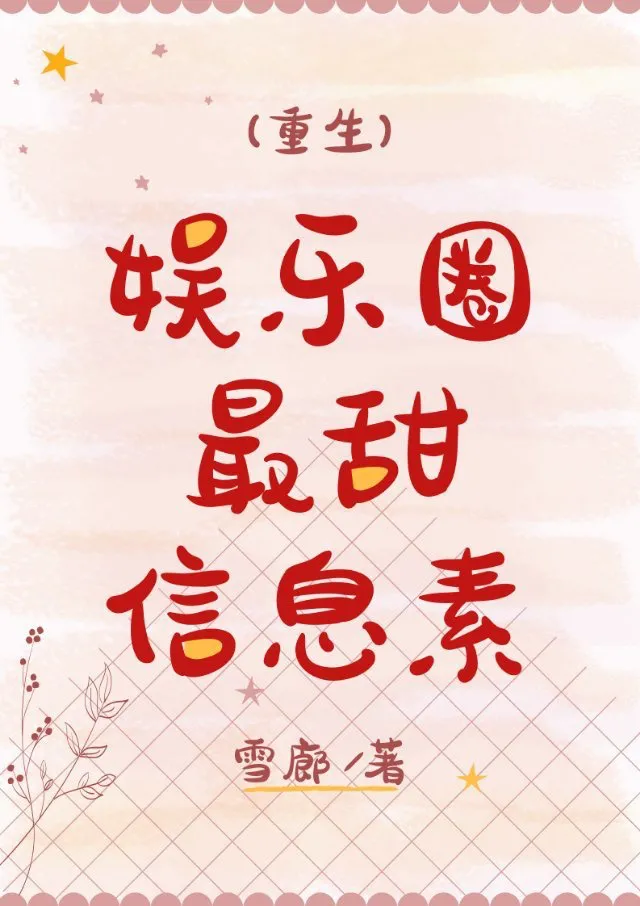 (重生)
娱乐圈
最甜
信息素
雪廊/著